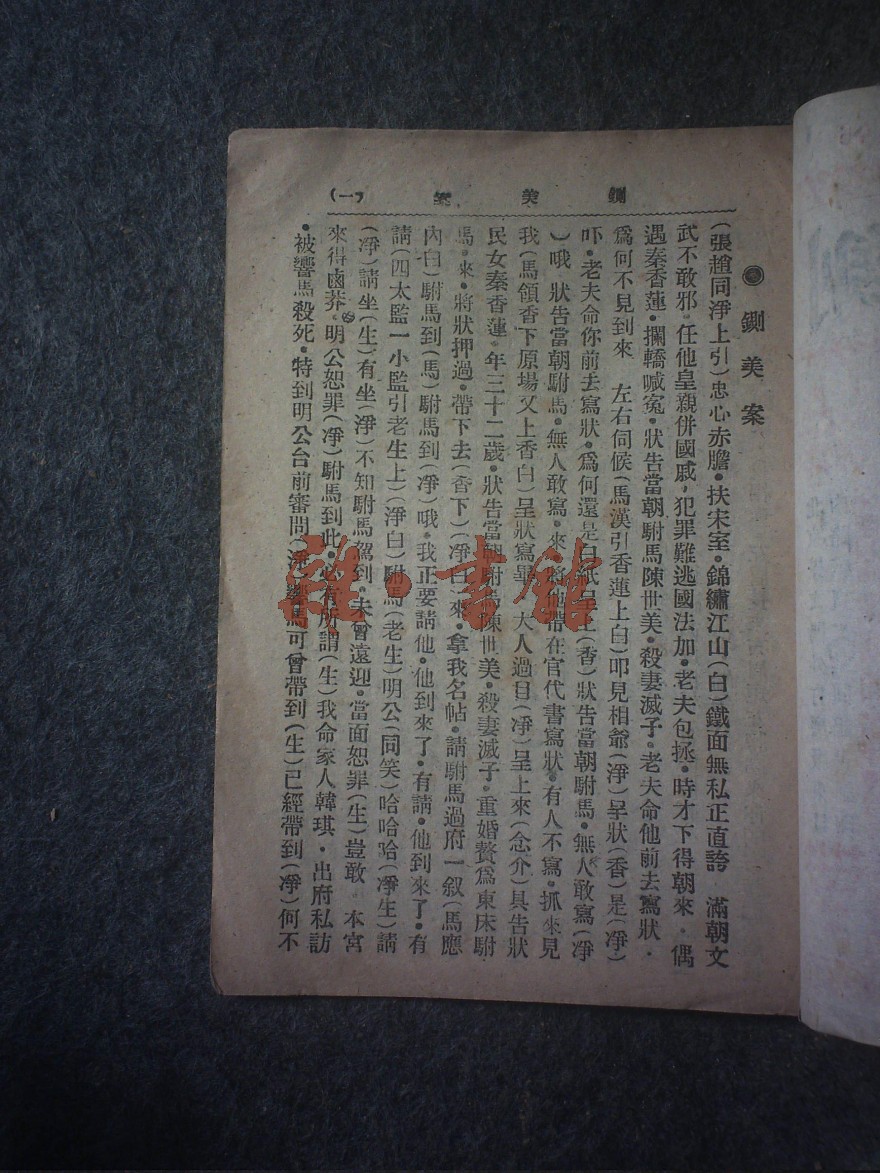 鍘美案 (一)
鍘美案
(張趙同淨上引)忠心赤膽•扶宋室•錦繡江山(白)鐵面無私正直誇 滿朝文
武不敢邪•任他皇親併國戚•犯罪難逃國法加•老夫包拯•時才下得朝來•偶
遇秦香蓮•攔轎喊冤•狀告當朝駙馬陳世美•殺妻滅子•老夫命他前去寫狀•
爲何不見到來 左右伺候(馬漢引香蓮上白)叩見相爺(淨)呈狀(香)是(淨)
吓•老夫命你前去寫狀•爲何還是白紙呈上(香)狀告當朝駙馬•無人敢寫(淨
)哦 狀告當朝駙馬•無人敢寫•來 將他帶在官代書寫狀•有人不寫•抓來見
我(馬領香下原場又上香白)呈狀寫畢 大人過目(淨)呈上來(念介)具告狀
民女秦香蓮•年三十二歲•狀告當朝駙馬陳世美•殺妻滅子•重婚贅爲東床駙
馬•來•將狀押過•帶下去(香下)(淨白)來•拿我名帖•請駙馬過府一叙(馬應
內白)駙馬到(馬)駙馬到(淨)哦•我正要請他•他到來了•有請•他到來了•有
請(四太監一小監引老生上)(淨白)駙馬(老生)明公(同笑)哈哈哈(淨生)請
(淨)請坐(生)有坐(淨)不知駙馬駕到•未曾遠迎•當面恕罪(生)豈敢 本宮
來得鹵莽•明公恕罪(淨)駙馬到此•必有所謂(生)我命家人韓琪•出府私訪
•被響馬殺死•特到明公台前審問(淨)響馬可曾帶到(生)已經帶到(淨)何不
雜•書館